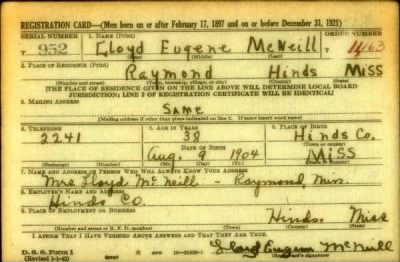 REGISTRATION CARD—(Men born on or after February 17, 1897 and on or before December 31, 1921)
SERIAL NUMBER 1. NAME (Print) ORDER NUMBER
T 952 Lloyd Eugene McNeill 11,163
(First) (Middle) (Last)
2. PLACE OF RESIDENCE (Print)
Raymond Hinds Miss
(Number and street) (Town, township, village, or city) (County) (State)
[THE PLACE OF RESIDENCE GIVEN ON THE LINE ABOVE WILL DETERMINE LOCAL BOARD
JURISDICTION; LINE 2 OF REGISTRATION CERTIFICATE WILL BE IDENTICAL]
3. MAILING ADDRESS
Same
(Mailing address if other than place indicated on line 2. If same insert word same)
4. TELEPHONE 5. AGE IN YEARS 6. PLACE OF BIRTH
2241 38 Hinds Co.
DATE OF BIRTH (Town or county)
Aug. 9 1904 Miss
(Exchange) (Number) (Mo.) (Day) (Yr.) (State or country)
7. NAME AND ADDRESS OF PERSON WHO WILL ALWAYS KNOW YOUR ADDRESS
Mrs Lloyd McNeill - Raymond, Miss.
8. EMPLOYER'S NAME AND ADDRESS
Hinds Co.
9. PLACE OF EMPLOYMENT OR BUSINESS
Hinds Miss
(Number and street or R. F. D. number) (Town) (County) (State)
I AFFIRM THAT I HAVE VERIFIED ABOVE ANSWERS AND THAT THEY ARE TRUE.
D. S. S. Form 1 Lloyd Eugene McNeill
(Revised 1-1-42) (Registrant's signature)